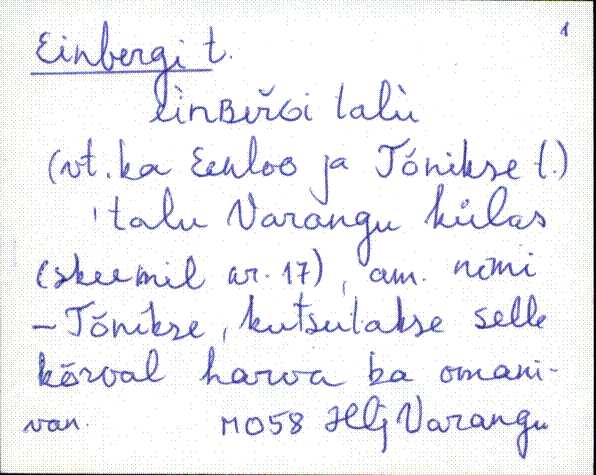 Einbergi t. 1
èinBeřGi talù
(vt. ka Eenloo ja Tõnikse t.)
'talu Varangu külas
(skeemil nr. 17), am. nimi
– Tõnikse, kutsutakse selle
kõrval harva ka omani-
van. MO58 Hlj Varangu